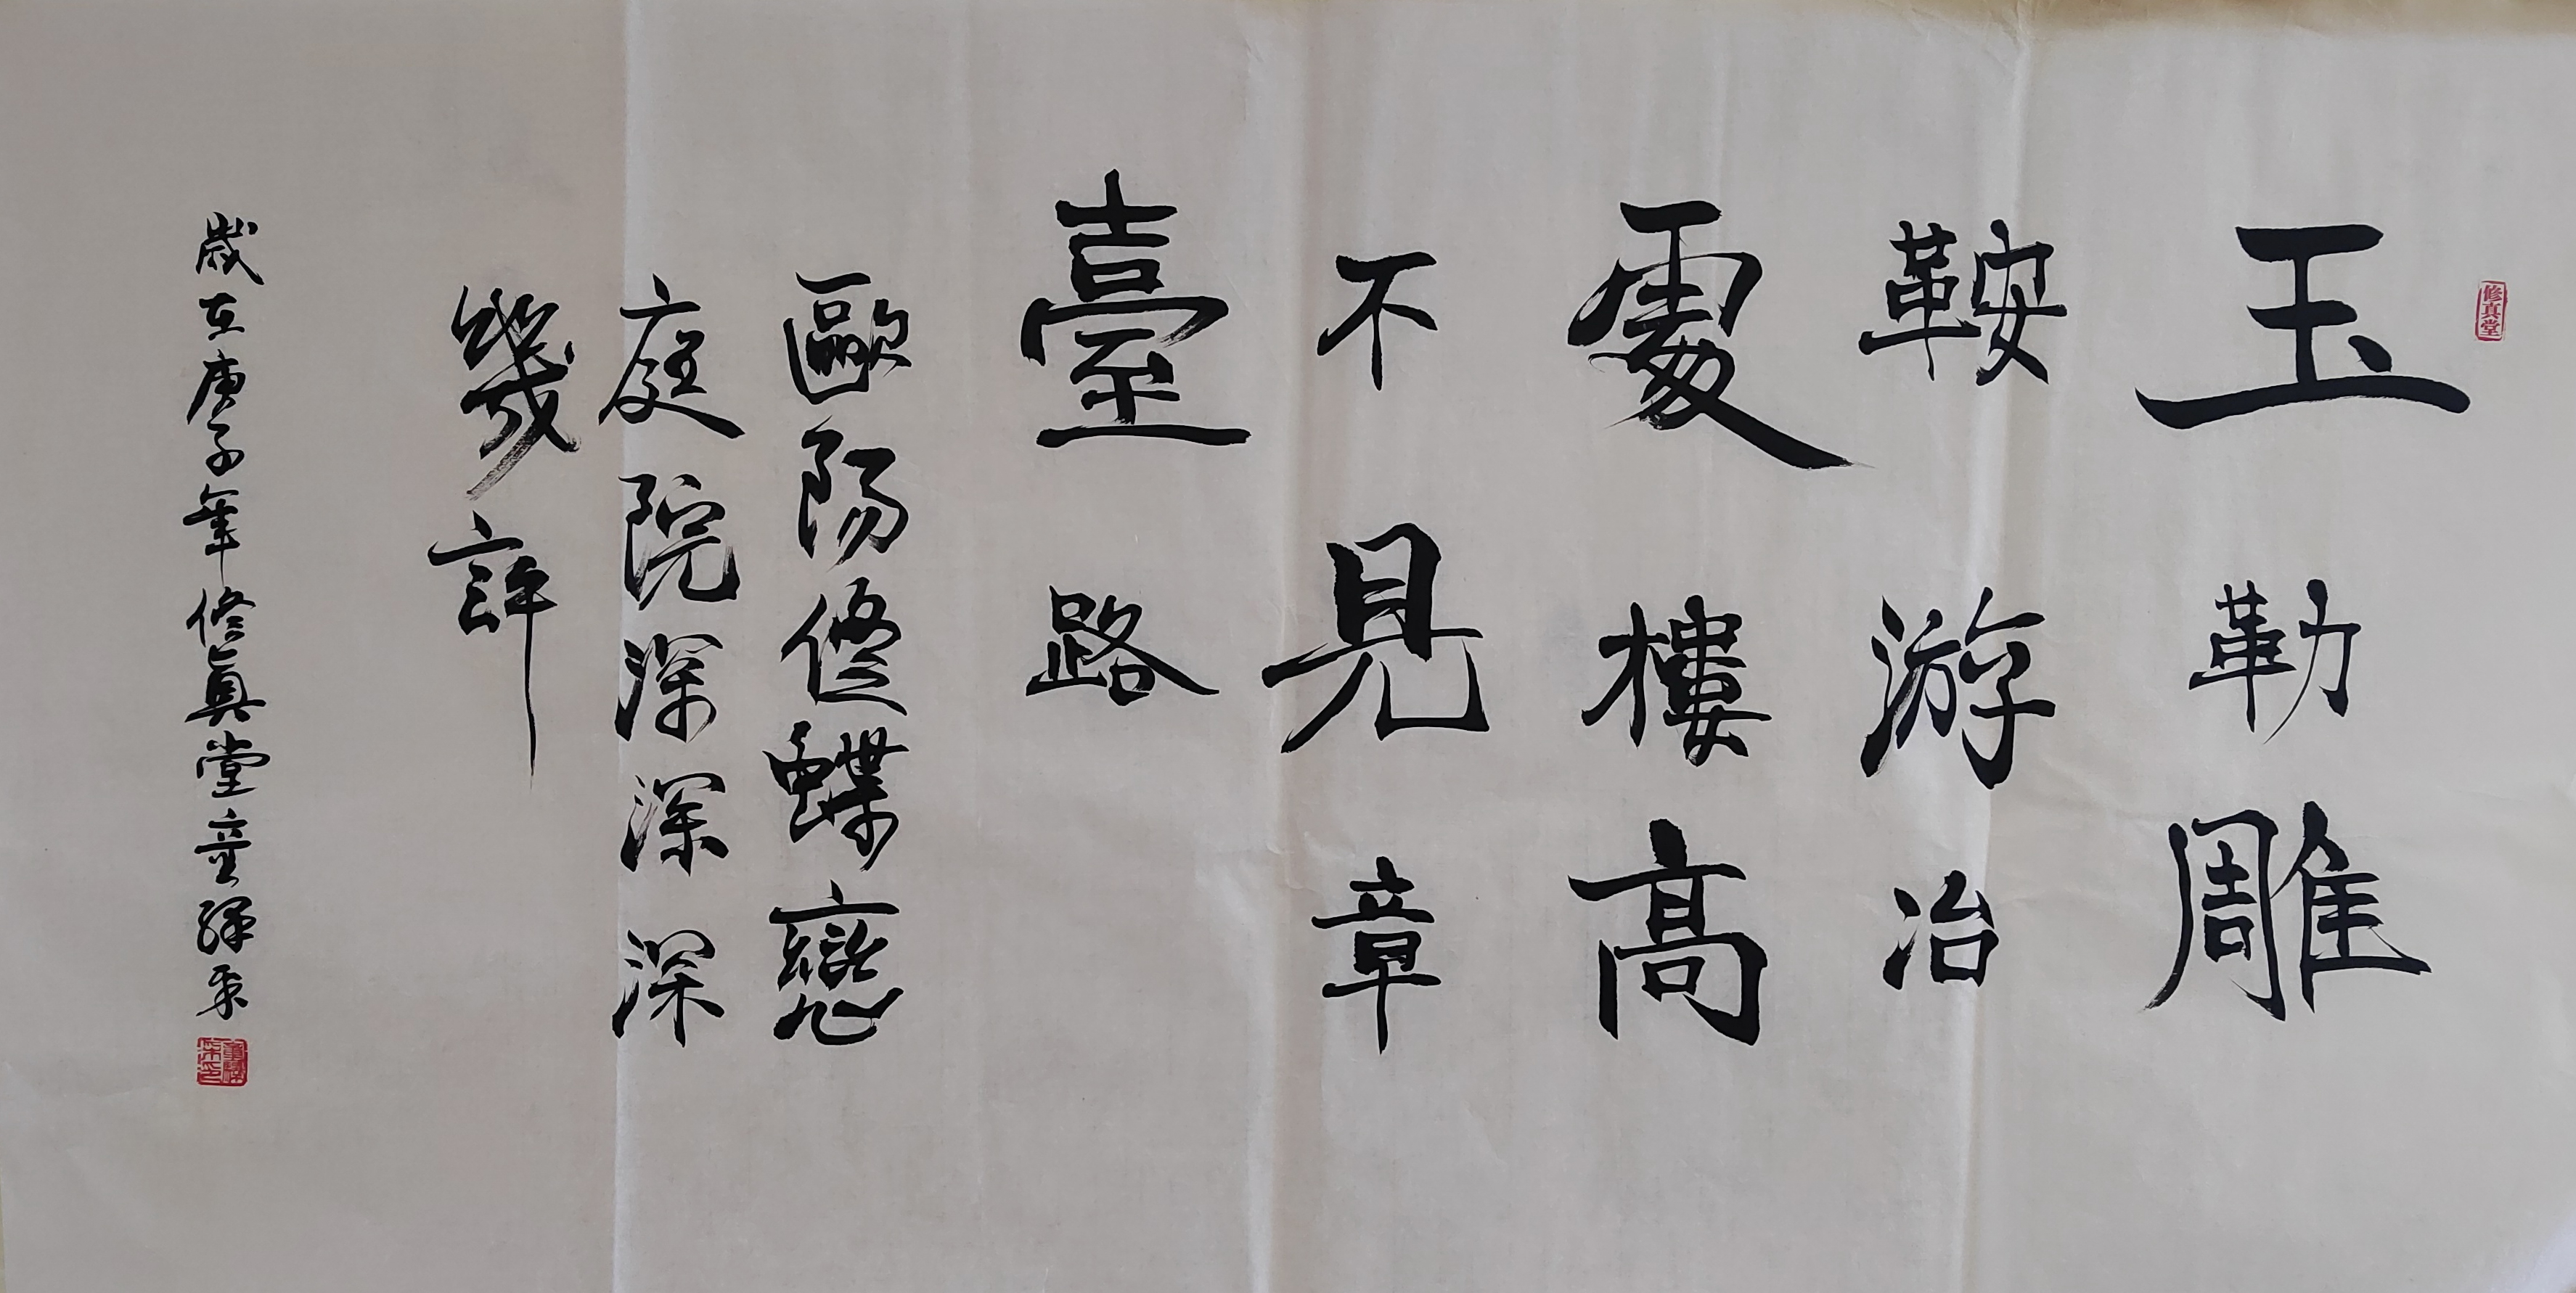 修真堂
玉勒雕
鞍游冶
處樓高
不見章
臺路
歐陽修蝶戀
庭院深深深
幾許
歲在庚子年修真堂童繹采